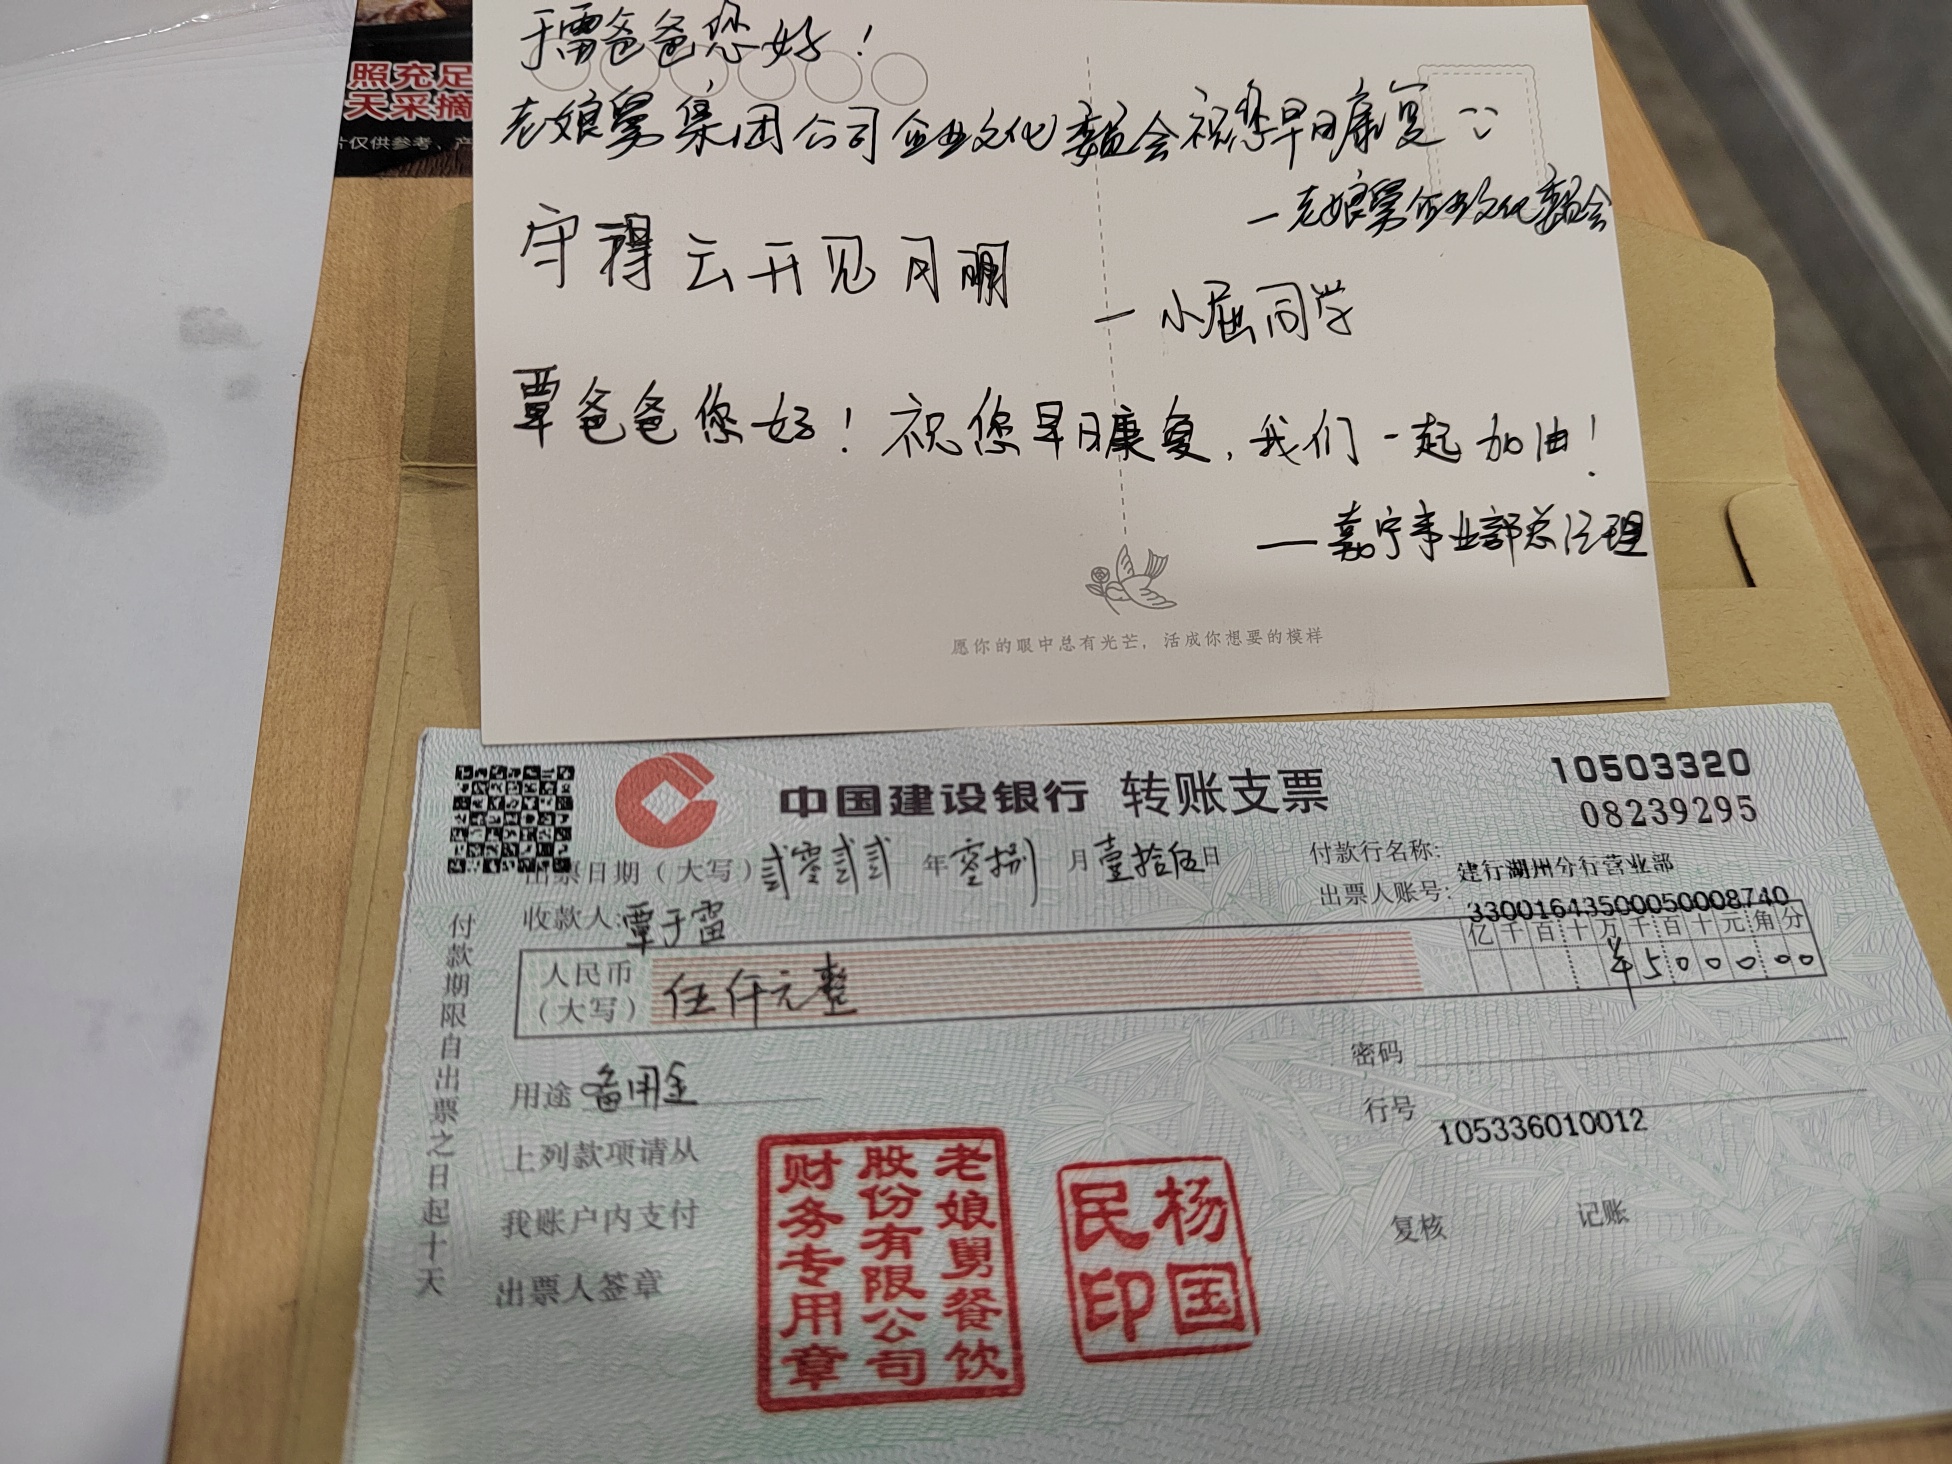 照充足
天采摘
片仅供参考、产
于雷爸爸您好！
老娘舅集团公司企业文化委员会祝您早日康复
一老娘舅企业文化委员会
守得云开见月明
一小屈同学
覃爸爸您好！祝您早日康复，我们一起加油！
一嘉宁事业部总经理
愿你的眼中总有光芒，活成你想要的模样
中国建设银行 转账支票
10503320
08239295
出票日期（大写）贰零贰贰年零捌月壹拾伍日
付款行名称：建行湖州分行营业部
收款人：覃于雷
出票人账号：33001643500050008740
人民币（大写）伍仟元整
亿千百十万千百十元角分
¥500000
用途 备用金
密码
行号 105336010012
上列款项请从
我账户内支付
出票人签章
复核 记账
付款期限自出票之日起十天
老娘舅餐饮
股份有限公司
财务专用章
杨国
民印